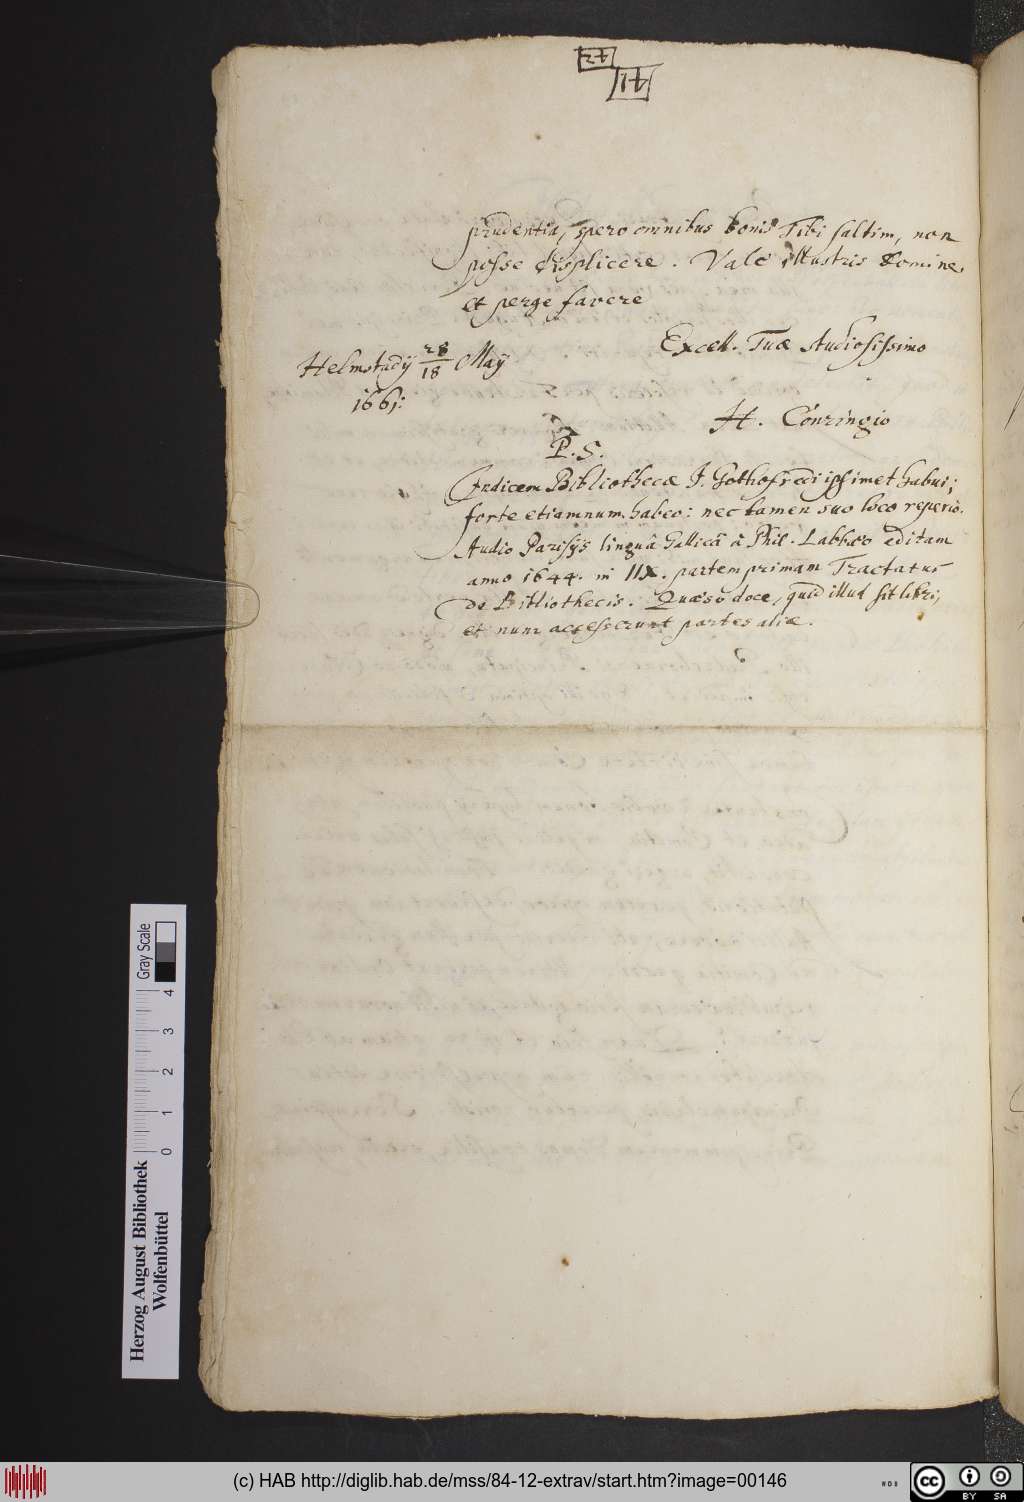 42
41
prudentia, spero omnibus bonis Tibi saltim, non
posse displicere. Vale illustris Domine,
et perge favere
Excell. Tuæ studiosissimo
Helmstadij 28/18 Maij
1661:
H. Conringio
P. S.
Indicem Bibliothecæ J. Gothofredi ipsimet habui;
forte etiamnum habeo: nec tamen suo loco reperio.
Audio Parisijs linguâ Gallicâ â Phil. Labbæo editam
anno 1644. in IIX. partem primam Tractatus
de Bibliothecis. Quæso doce, quid illud sit libri,
et num accesserunt partes aliæ.
Gray Scale
0 1 2 3 4
Herzog August Bibliothek
Wolfenbüttel
(c) HAB http://diglib.hab.de/mss/84-12-extrav/start.htm?image=00146
WDB
cc
BY SA